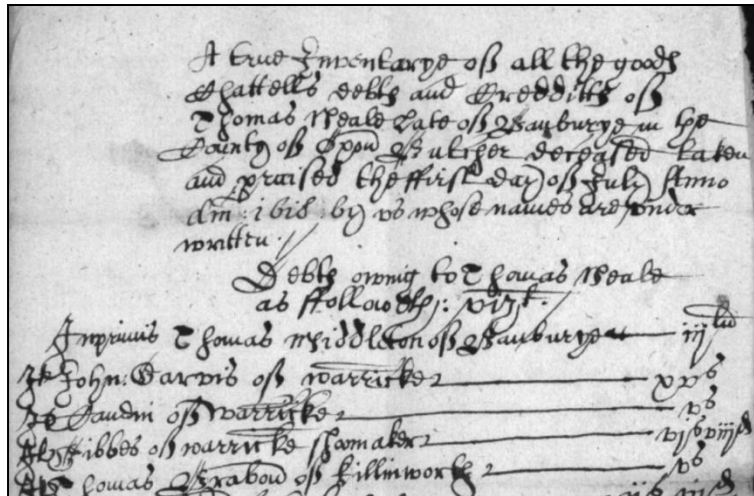 A true Inventarye off all the goods
Chattells debts and Credditts off
Thomas Weale Late off Banburye in the
County off Oxon Butcher deceased taken
and praised the ffirst day off July Anno
dm: 1618 by vs whose names are vnder
written
Debts owing to Thomas Weale
as ffolloweth: vizt.
Inprimis Thomas Middleton off Banburye iij li
It John Garvis off warricke xxs
It Gaudin off warricke vs
It Gibbes off warricke shomaker vjs viijd
It Thomas off killinworth vs